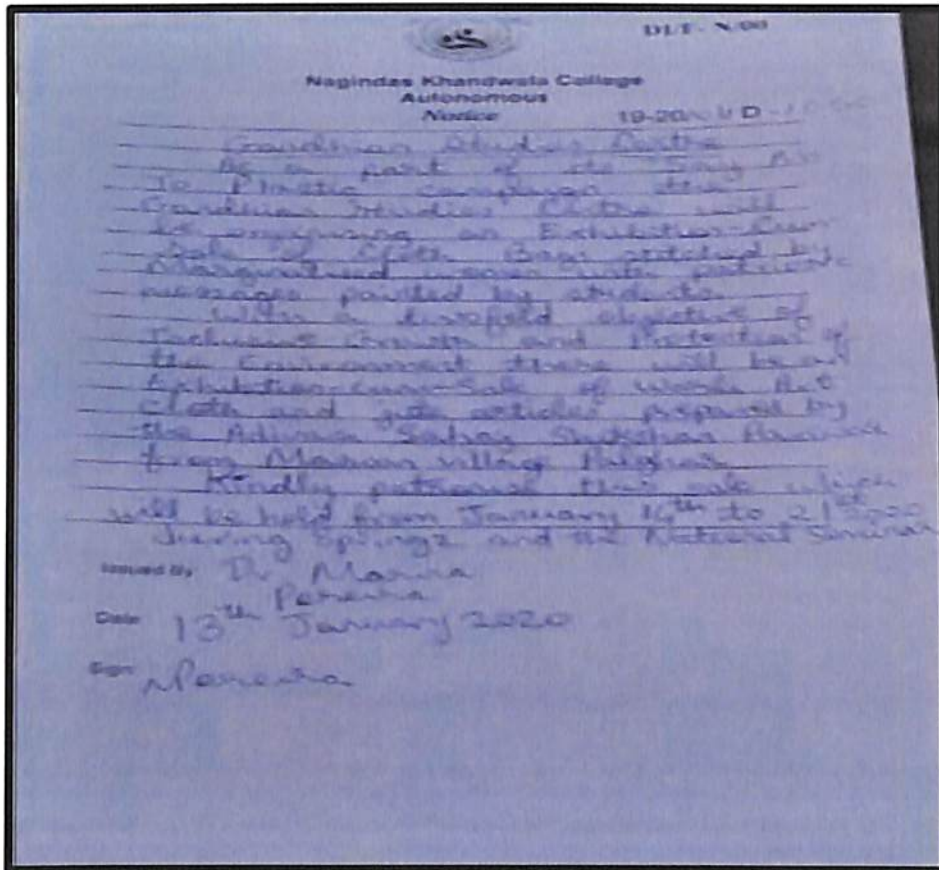 DLF- N/00
Nagindas Khandwala College
Autonomous
Notice
19-20
Gandhian Studies Centre
As a part of its "Say No
To Plastic campaign the
Gandhian Studies Centre will
be organising an Exhibition-Cum-
Sale of Cloth Bags stitched by
Marginalised women with
messages painted by students.
With a twofold objective of
Inclusive Growth and Protection of
the Environment there will be an
Exhibition-cum-Sale of
cloth and jute articles prepared by
the
from village Palghar.
Kindly patronise this sale which
will be held from January 16th to 21st 2020
during Springz and the National Seminar
Issued By Dr. Marina
Pereira
Date 13th January 2020
Sign MPereira